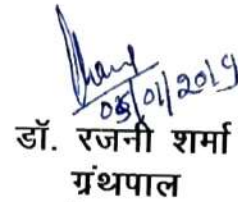 05/01/2019
डॉ. रजनी शर्मा
ग्रंथपाल